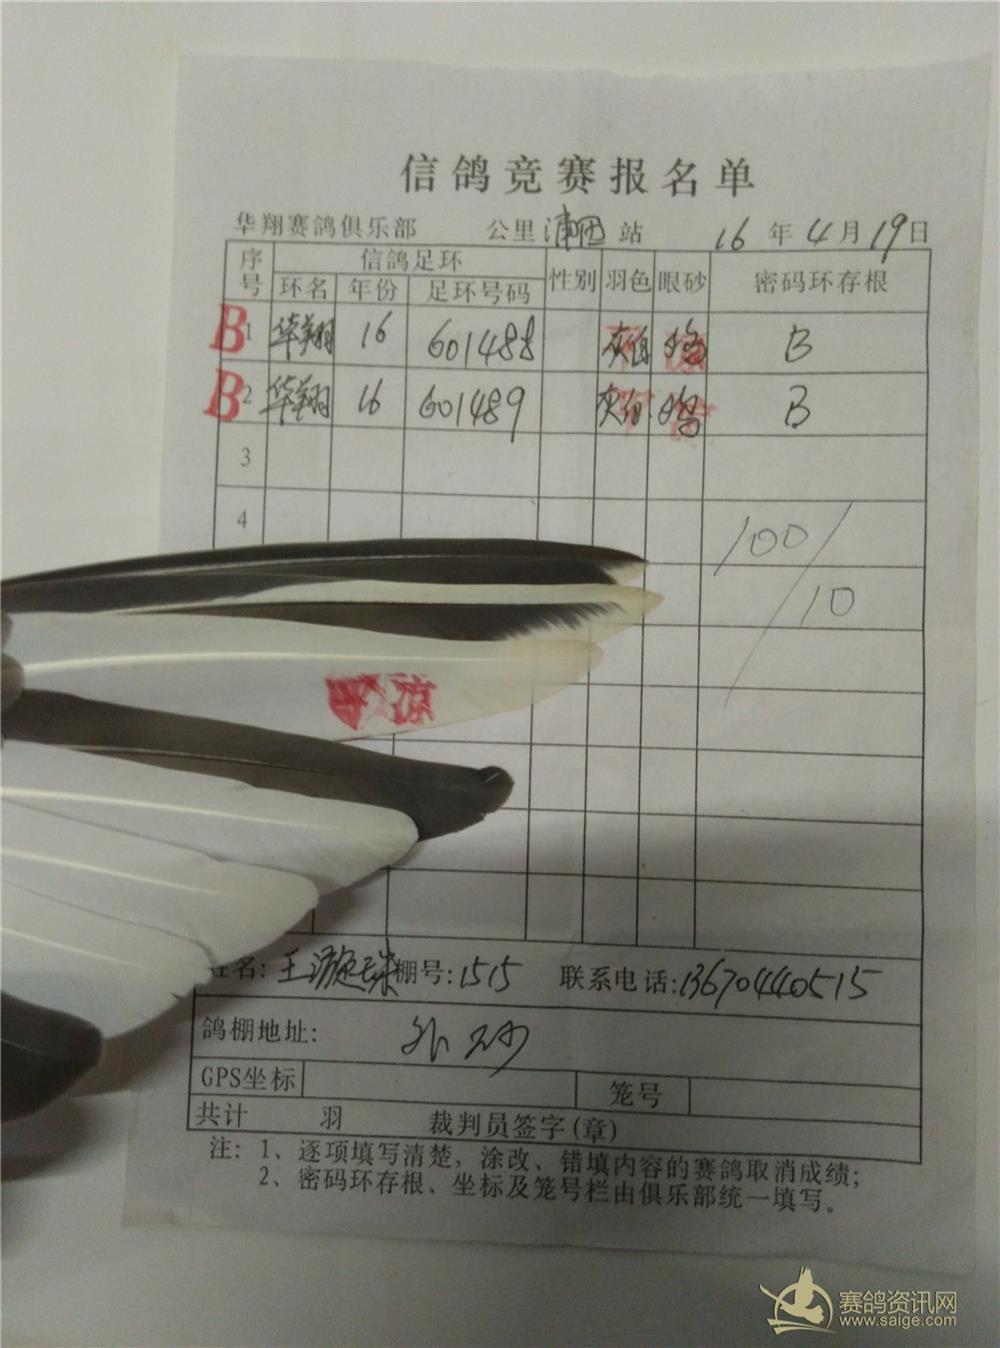 信鸽竞赛报名单
华翔赛鸽俱乐部 公里 站 16年4月19日
序号 信鸽足环 性别 羽色 眼砂 密码环存根
环名 年份 足环号码
B 1 华翔 16 601488 灰白 鸡 B
B 2 华翔 16 601489 灰白 鸡 B
3
4 100
10
姓名: 王 珠 棚号: 1515 联系电话: 13670440515
鸽棚地址: 外砂
GPS坐标 笼号
共计 羽 裁判员签字(章)
注: 1、逐项填写清楚，涂改、错填内容的赛鸽取消成绩;
2、密码环存根、坐标及笼号栏由俱乐部统一填写。
赛鸽资讯网
www.saige.com